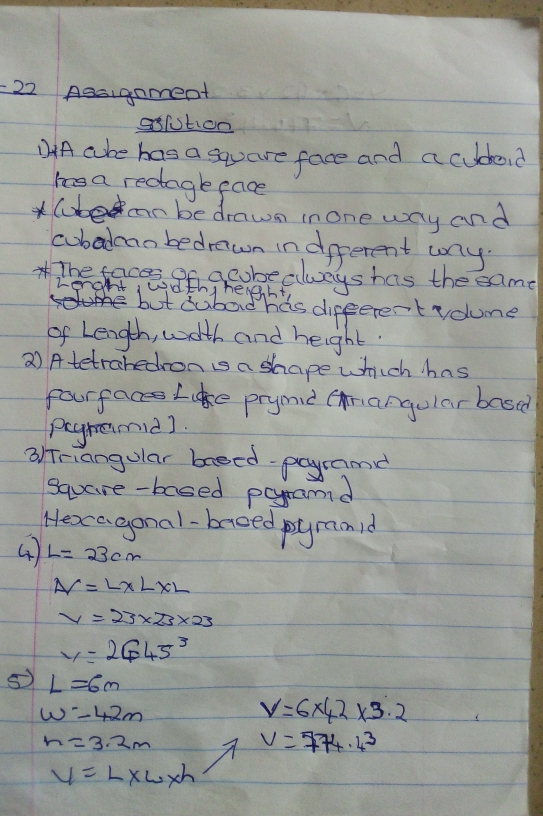 -22 Assignment
solution
1)*A cube has a square face and a cuboid
has a rectagle face
* Cube can be drawn in one way and
cuboid can be drawn in different way.
* The faces of a cube always has the same
Lenght, width, height,
volume but cuboid has different volume
of Length, width and height.
2) A tetrahedron is a shape which has
four faces Like prymid (Triangular based
payramid].
3) Triangular based - payramid
Square - based payramid
Hexcagonal - based pyramid
4) L = 23cm
V = L x L x L
V = 23 x 23 x 23
V = 2645³
5) L = 6m
w = 42m
h = 3.2m
V = L x w x h
V = 6 x 42 x 3.2
V = 774.4³